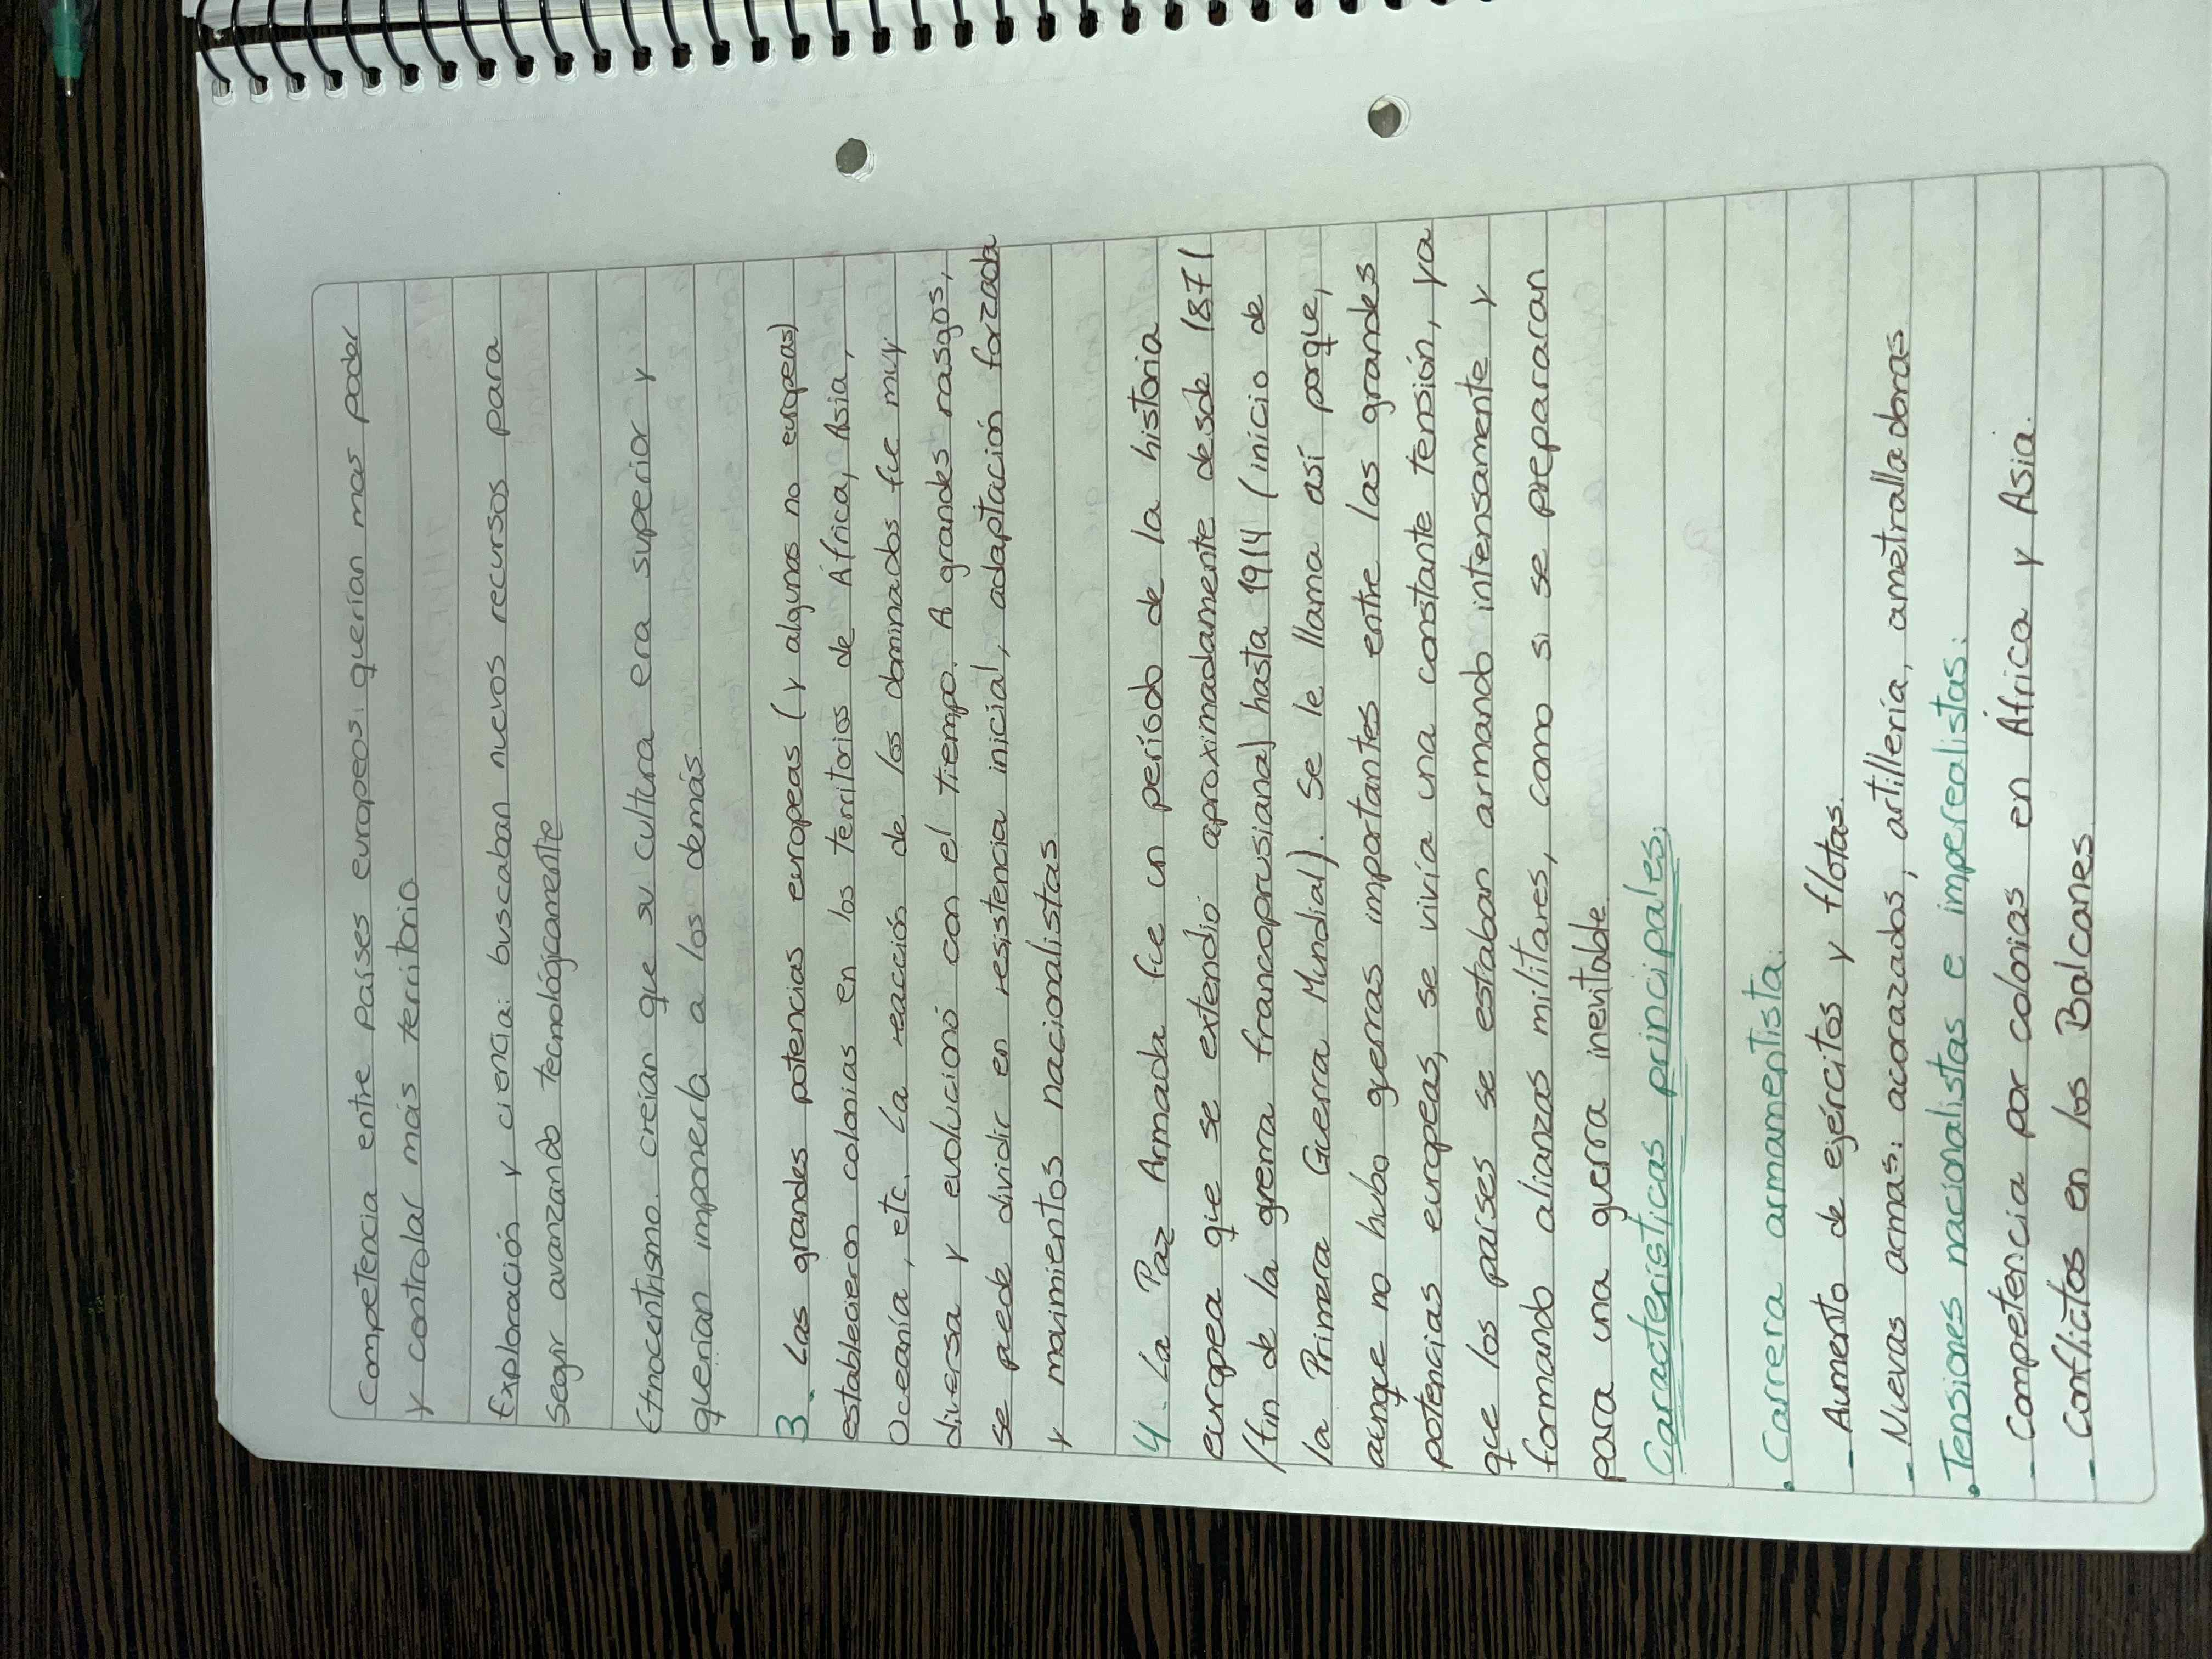 Competencia entre países europeos: querían mas poder
y controlar más territorio
Exploración y ciencia: buscaban nuevos recursos para
seguir avanzando tecnológicamente
Etnocentrismo: creían que su cultura era superior y
querían imponerla a los demás
3. Las grandes potencias europeas (y algunas no europeas)
establecieron colonias en los territorios de África, Asia,
Oceanía, etc. La reacción de los dominados fue muy
diversa y evolucionó con el tiempo. A grandes rasgos,
se puede dividir en resistencia inicial, adaptación forzada
y movimientos nacionalistas
4. La Paz Armada fue un período de la historia
europea que se extendió aproximadamente desde 1871
(fin de la grerra francoprusiana) hasta 1914 (inicio de
la Primera Guerra Mundial). Se le llama así porque,
aunque no hubo guerras importantes entre las grandes
potencias europeas, se vivía una constante tensión, ya
que los países se estaban armando intensamente y
formando alianzas militares, como si se prepararan
para una guerra inevitable
Características principales:
• Carrera armamentista:
- Aumento de ejércitos y flotas.
- Nuevas armas: acorazados, artillería, ametralladoras
• Tensiones nacionalistas e imperealistas:
- Competencia por colonias en África y Asia.
- Conflictos en los Balcanes